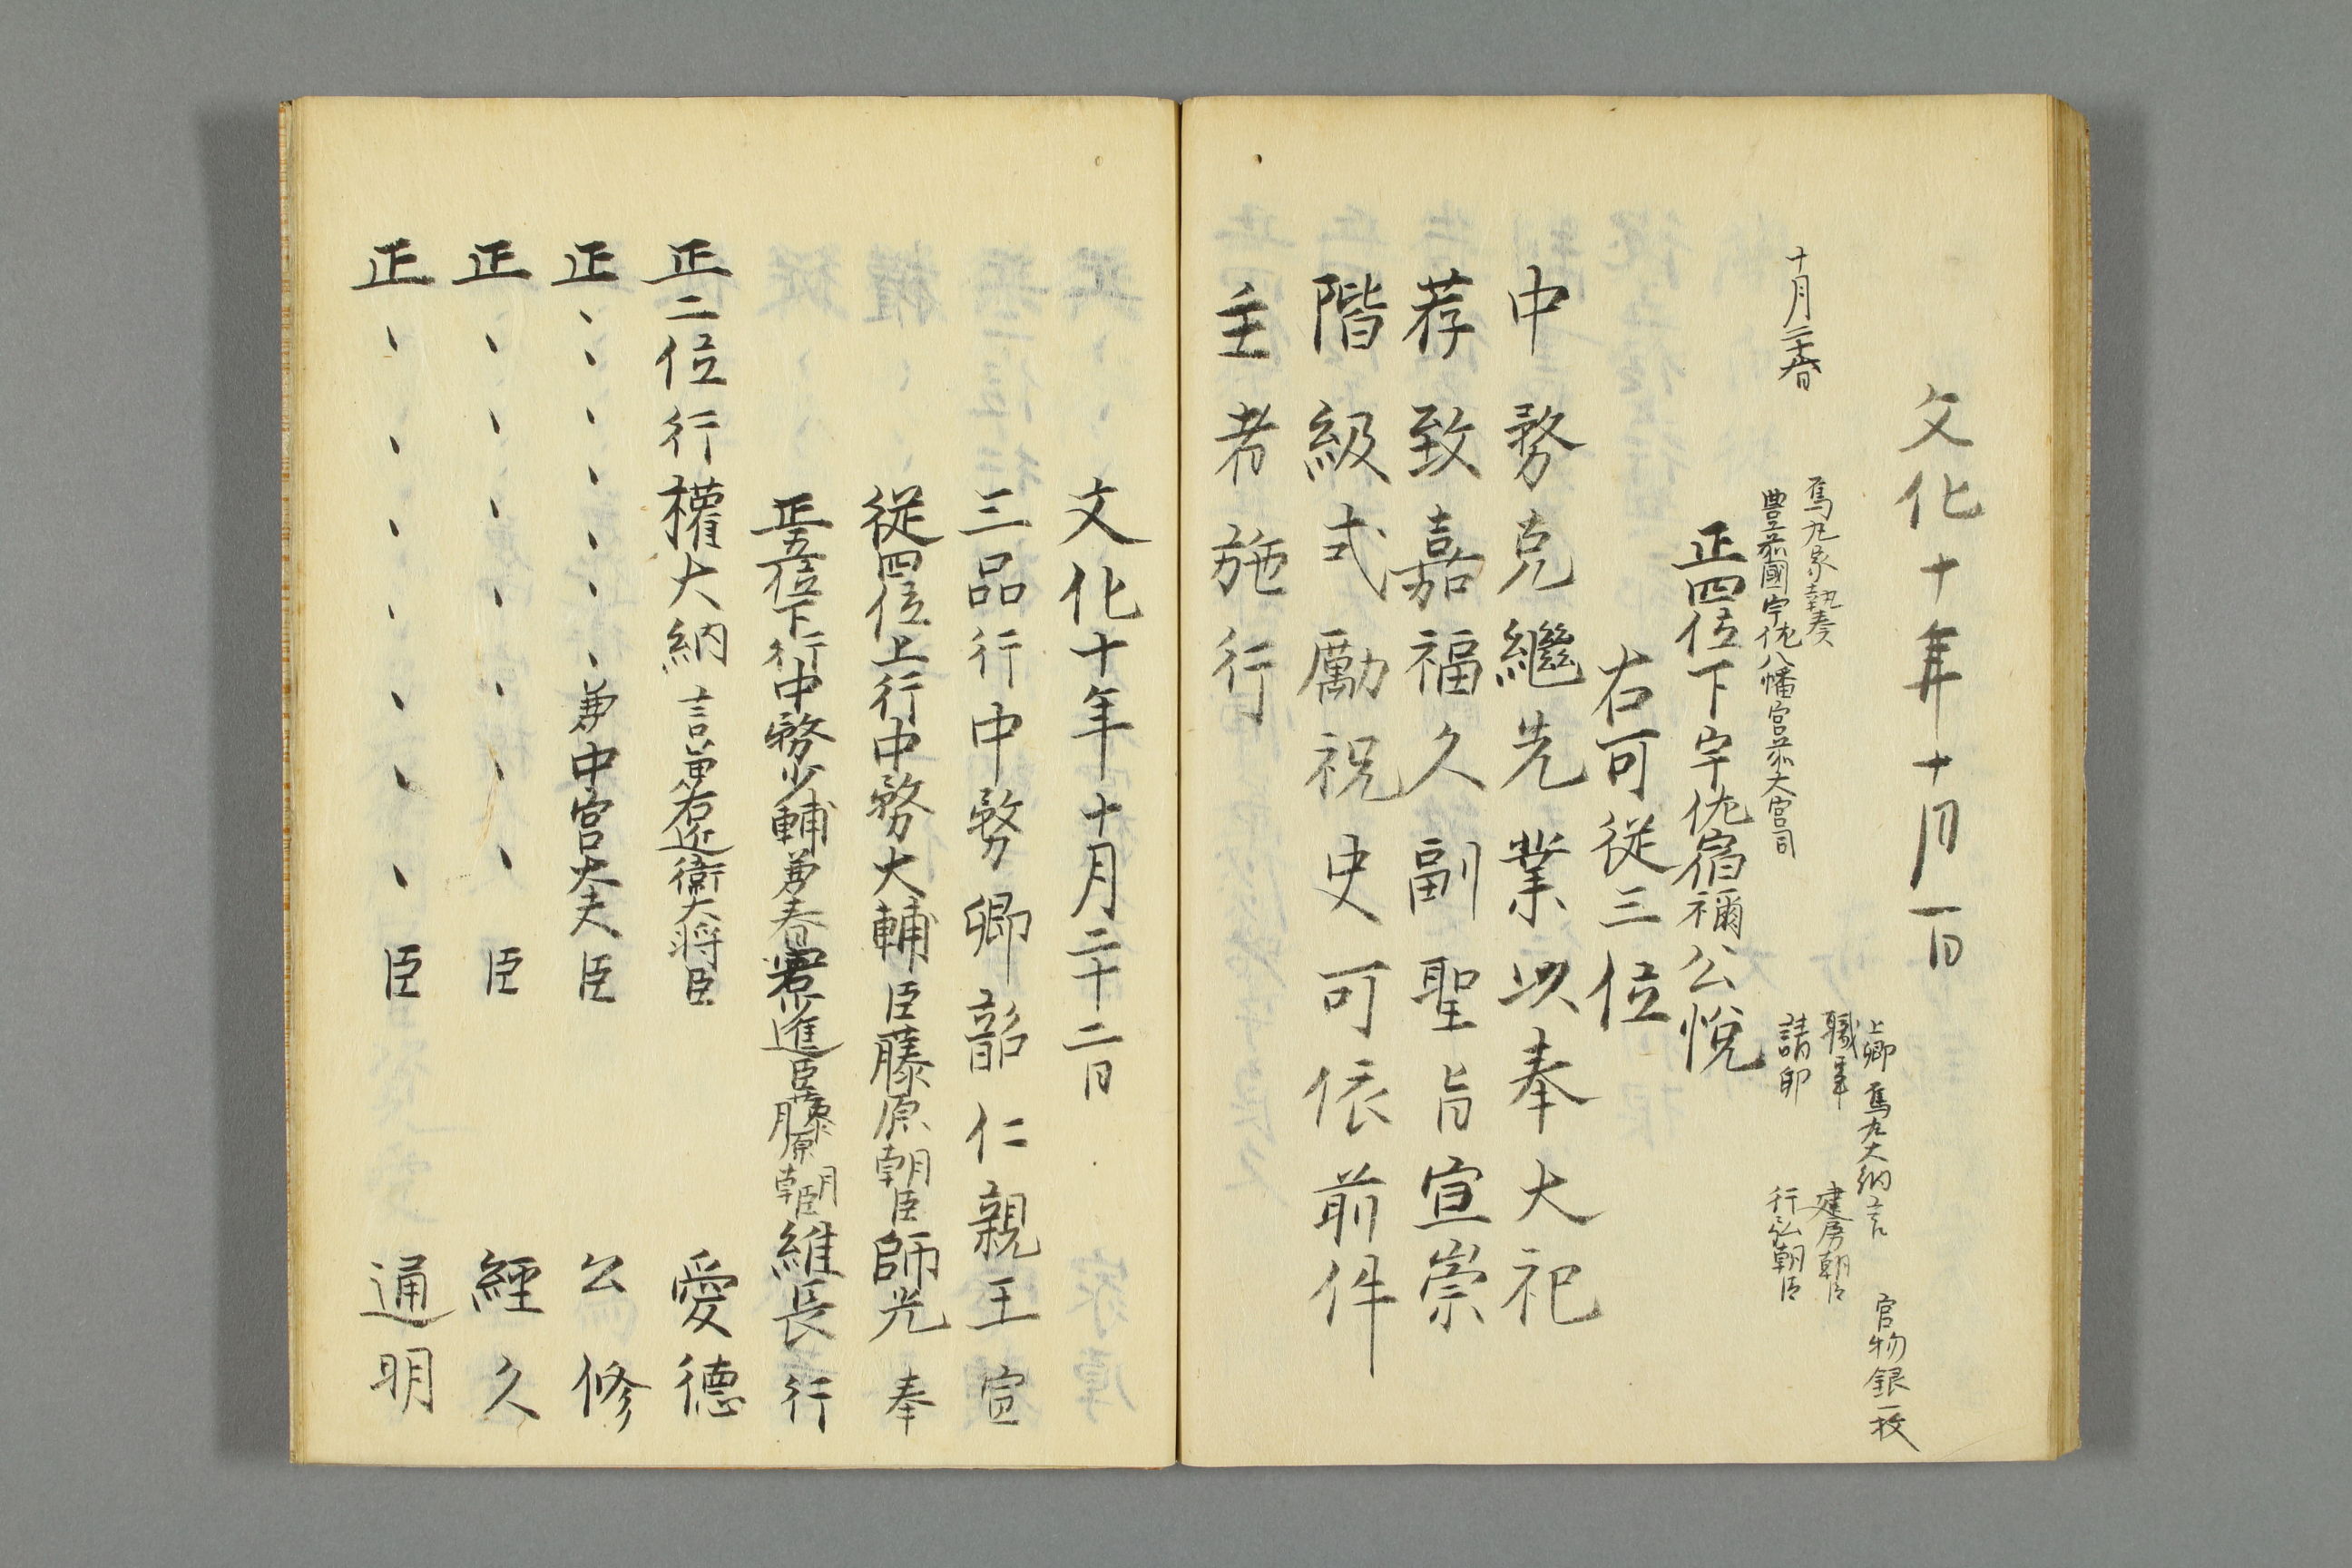 文化十年十月一日
上卿 烏丸大納言 官物銀一枚
職事 建房朝臣
請印 行弘朝臣
十月二十二日
烏丸家執奏
豊前國宇佐八幡宮前大宮司
正四位下宇佐宿禰公悅
右可従三位
中務克繼先業以奉大祀
荐致嘉福久副聖旨宣崇
階級式勵祝史可依前件
主者施行
文化十年十月二十二日
三品行中務卿韶仁親王 宣
従四位上行中務大輔臣藤原朝臣師光 奉
正五位下行中務少輔兼春宮少進臣藤原朝臣維長 行
正二位行權大納言兼右近衛大将臣 愛德
正、、、、、、兼中宮大夫臣 公修
正、、、、、、、臣 經久
正、、、、、、、臣 通明